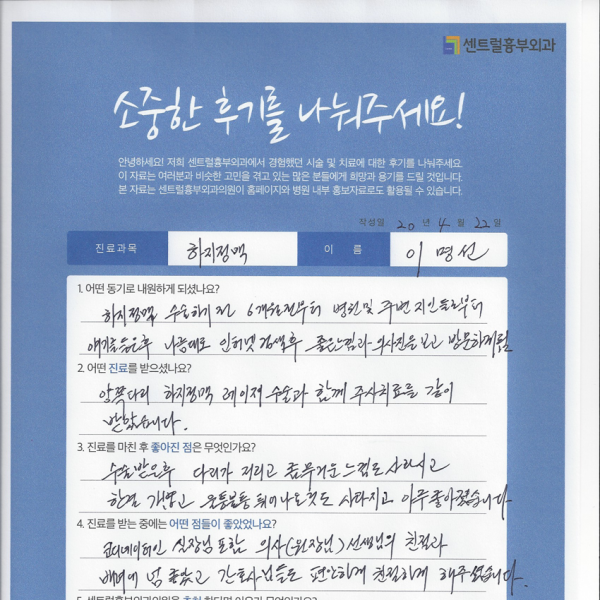 센트럴흉부외과
소중한 후기를 나눠주세요!
안녕하세요! 저희 센트럴흉부외과에서 경험했던 시술 및 치료에 대한 후기를 나눠주세요.
이 자료는 여러분과 비슷한 고민을 겪고 있는 많은 분들에게 희망과 용기를 드릴 것입니다.
본 자료는 센트럴흉부외과의원이 홈페이지와 병원 내부 홍보자료로도 활용될 수 있습니다.
작성일 20 년 4 월 22 일
진료과목 하지정맥 이 름 이명선
1. 어떤 동기로 내원하게 되셨나요?
하지정맥 수술하기 전 6개월전부터 병원및 주변 지인들로부터
얘기를들은후 나름대로 인터넷검색후 좋은느낌과 사진을 보고 방문하게됨
2. 어떤 진료를 받으셨나요?
양쪽다리 하지정맥 레이저 수술과 함께 주사치료를 같이
받았습니다.
3. 진료를 마친 후 좋아진 점은 무엇인가요?
수술받은후 다리가 저리고 좀무거운느낌도 사라지고
한결 개볍고 울퉁불퉁 튀어나온것도 사라지고 아주좋아졌습니다
4. 진료를 받는 중에는 어떤 점들이 좋았었나요?
코디네이터인 실장님 포함 의사(원장님) 선생님의 친절과
배려에 넘 좋았고 간호사님들도 편안하게 친절하게 해주셨습니다.